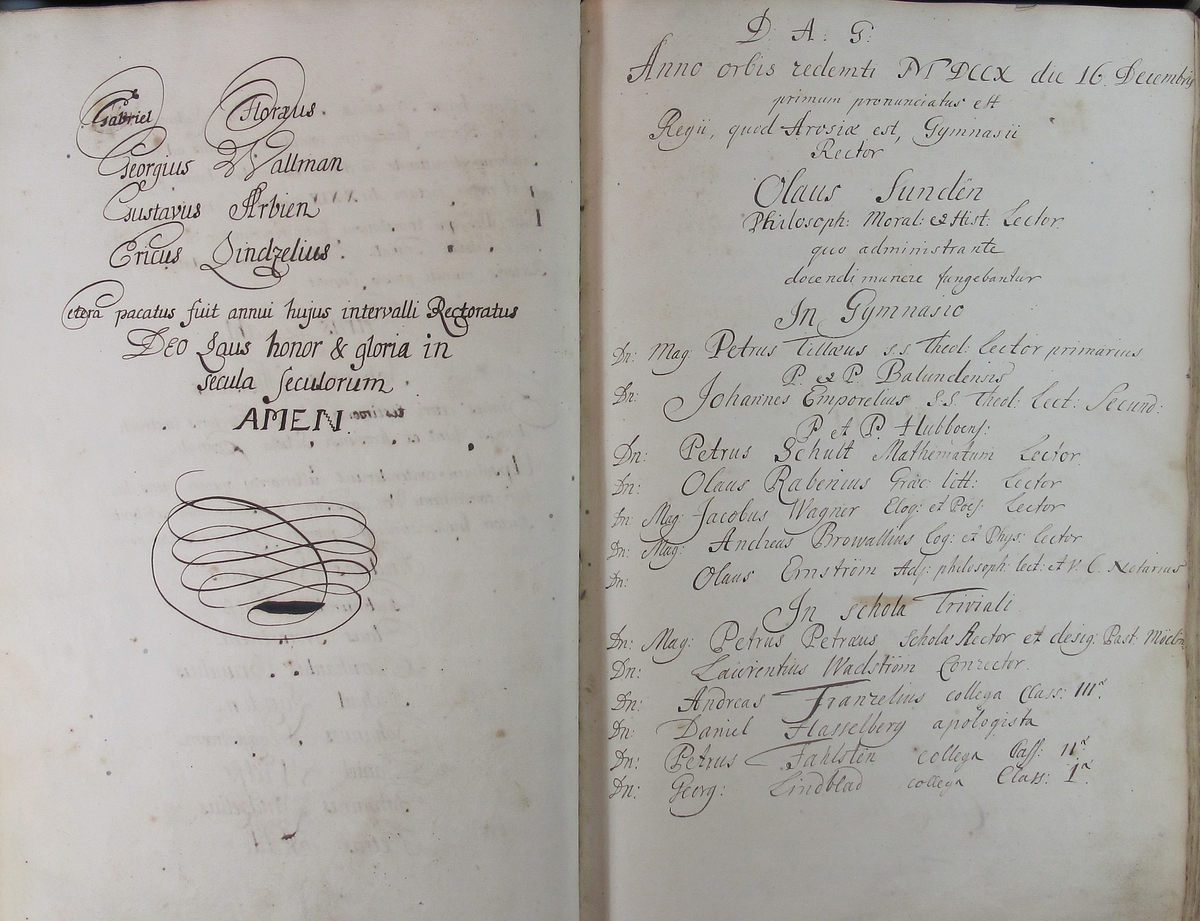 Gabriel Floræus.
Georgius Wallman
Gustavus Arbien
Ericus Lindzelius.
Cetera pacatus fuit annui hujus intervalli Rectoratus
DEO Laus honor & gloria in
secula seculorum
AMEN.
D. A. G.
Anno orbis redemti MDCCX die 16 Decembris
primum pronunciatus est
Regii, quod Arosiæ est, Gymnasii
Rector
Olaus Sundën
Philosoph: Moral: et Hist: Lector
quo administrante
docendi munere fungebantur
In Gymnasio
Dn: Mag: Petrus Tillæus s.s. Theol: Lector primarius
P. et P. Balundensis
Dn: Johannes Emporelius S.S. Theol: Lect: Secund:
P et P. Hubboens:
Dn: Petrus Schult Mathematum Lector
Dn: Olaus Rabenius Græc: litt: Lector
Dn: Mag: Jacobus Wagner Eloq: et Poës: Lector
Dn: Mag: Andreas Browallius Log: et Phys: Lector
Dn: Olaus Ernström Adj: philosoph: lect: et V. C. Notarius
In schola Triviali
Dn: Mag: Petrus Petræus Scholæ Rector et desig: Past:
Dn: Laurentius Wadström Conrector.
Dn: Andreas Franzelius collega Class: III.æ
Dn: Daniel Hasselberg apologista
Dn: Petrus Fahlstën collega Class: II.æ
Dn: Georg: Lindblad collega Class: I.æ